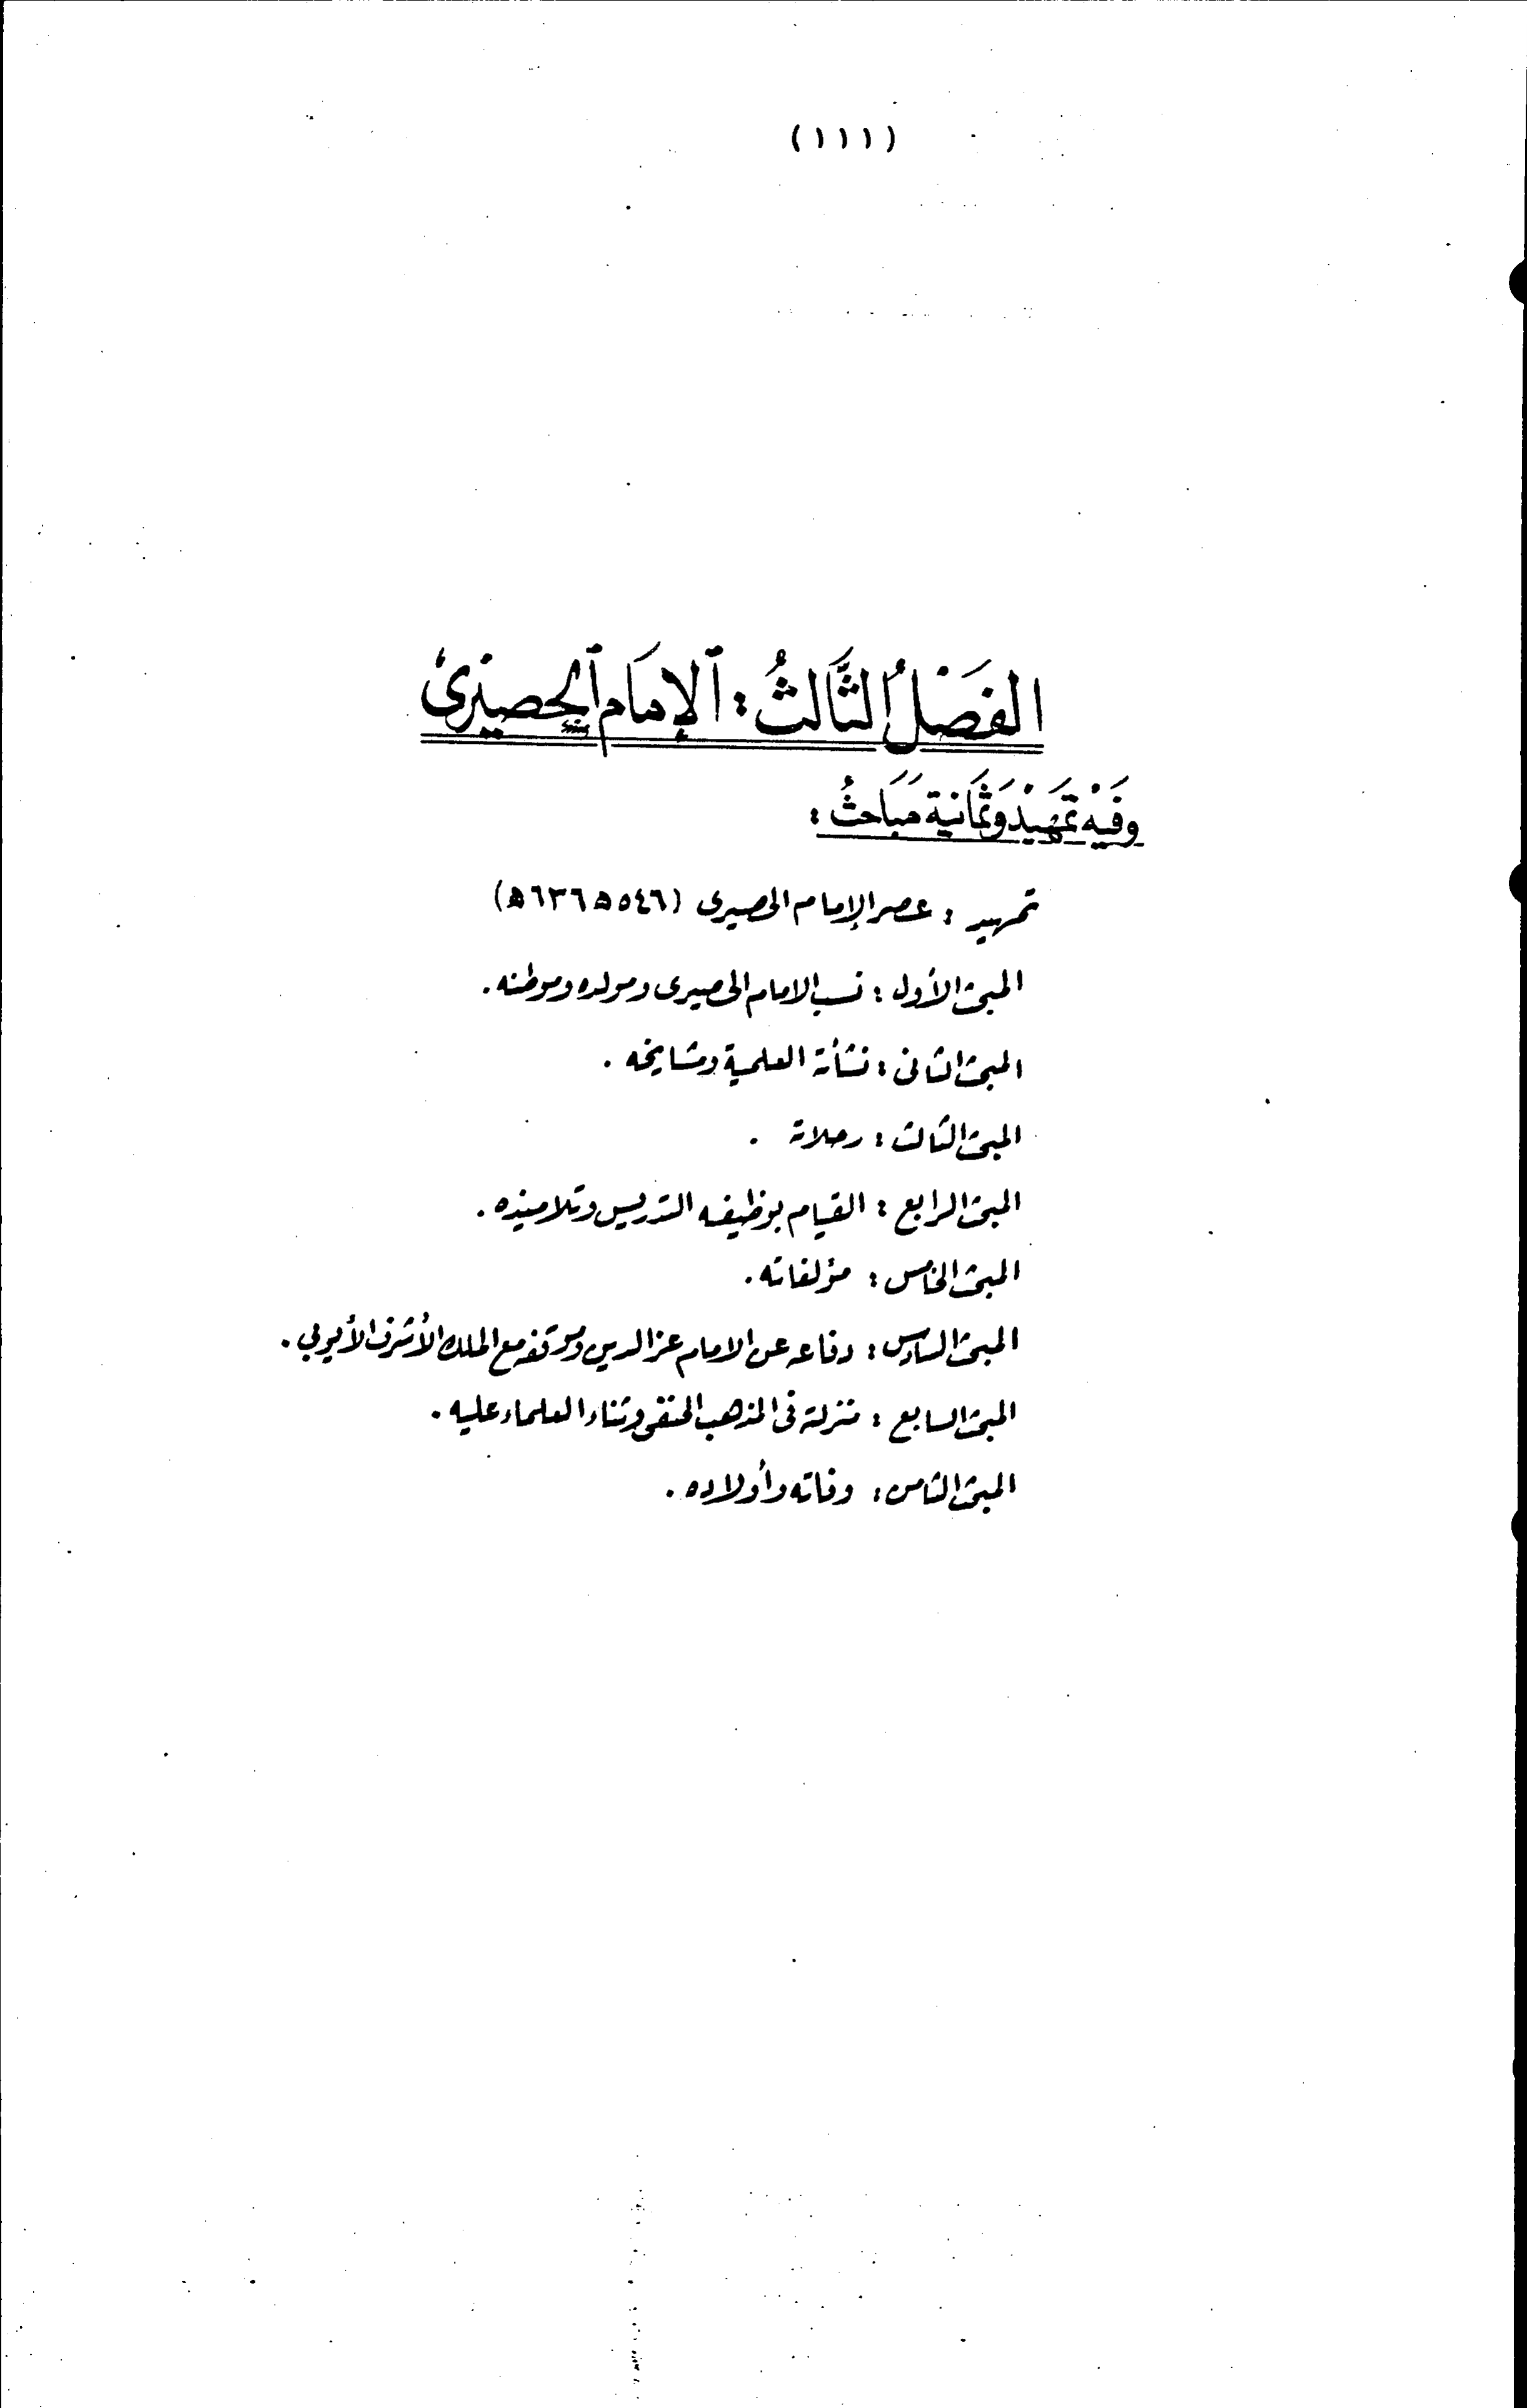 (١١١)
الفَصْلُ الثَّالثُ : الإمَام الحصيْرىُ
وفيْه تمهيْد وَثمَانية مَبَاحثُ :
تمهيد : عصر الإمام الحصيرى (٥٤٦ ه ٦٣٦ ه)
المبحث الأول : نسب الامام الحصيرى ومولده وموطنه .
المبحث الثانى : نشأته العلمية ومشايخه .
المبحث الثالث : رحلاته .
المبحث الرابع : القيام بوظيفه التدريس وتلاميذه .
المبحث الخامس : مؤلفاته .
المبحث السادس : دفاعه عن الامام عز الدين وموقفه مع الملك الأشرف الأيوبي .
المبحث السابع : منزلته فى المذهب الحنفى وثناء العلماء عليه .
المبحث الثامن : وفاته وأولاده .